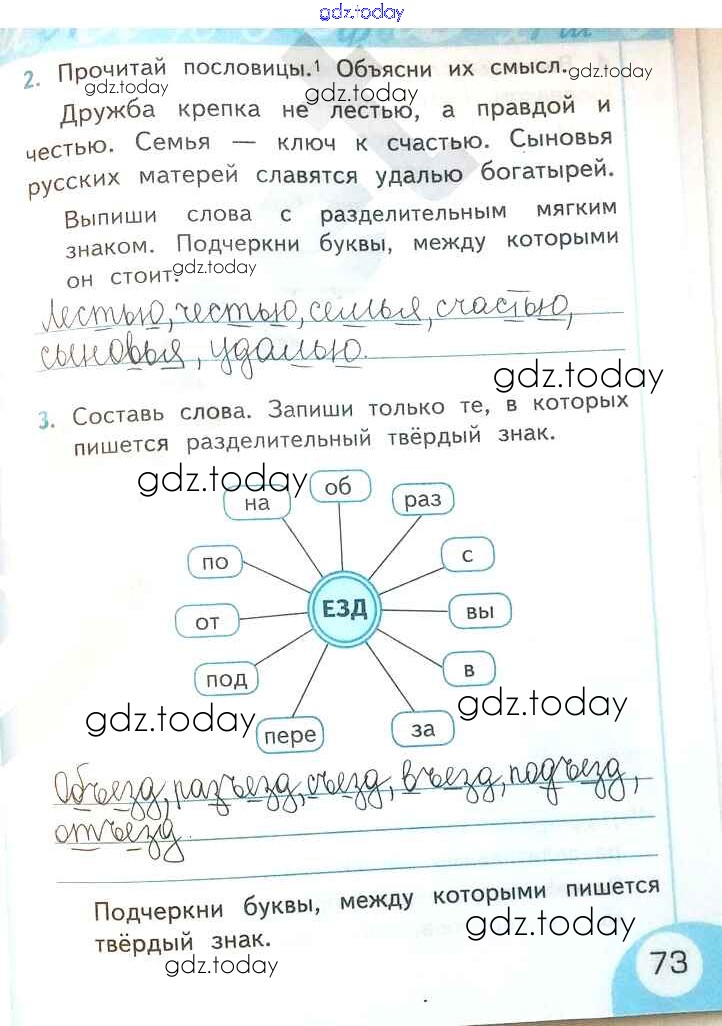 gdz.today
2. Прочитай пословицы.¹ Объясни их смысл.
gdz.today gdz.today
Дружба крепка не лестью, а правдой и
честью. Семья — ключ к счастью. Сыновья
русских матерей славятся удалью богатырей.
Выпиши слова с разделительным мягким
знаком. Подчеркни буквы, между которыми
он стоит. gdz.today
Лестью, честью, семья, счастью,
сыновья, удалью.
gdz.today
3. Составь слова. Запиши только те, в которых
пишется разделительный твёрдый знак.
gdz.today
на об раз
по с
от ЕЗД вы
под в
gdz.today gdz.today
пере за
Объезд, разъезд, съезд, въезд, подъезд,
отъезд.
Подчеркни буквы, между которыми пишется
твёрдый знак.
gdz.today
gdz.today
73